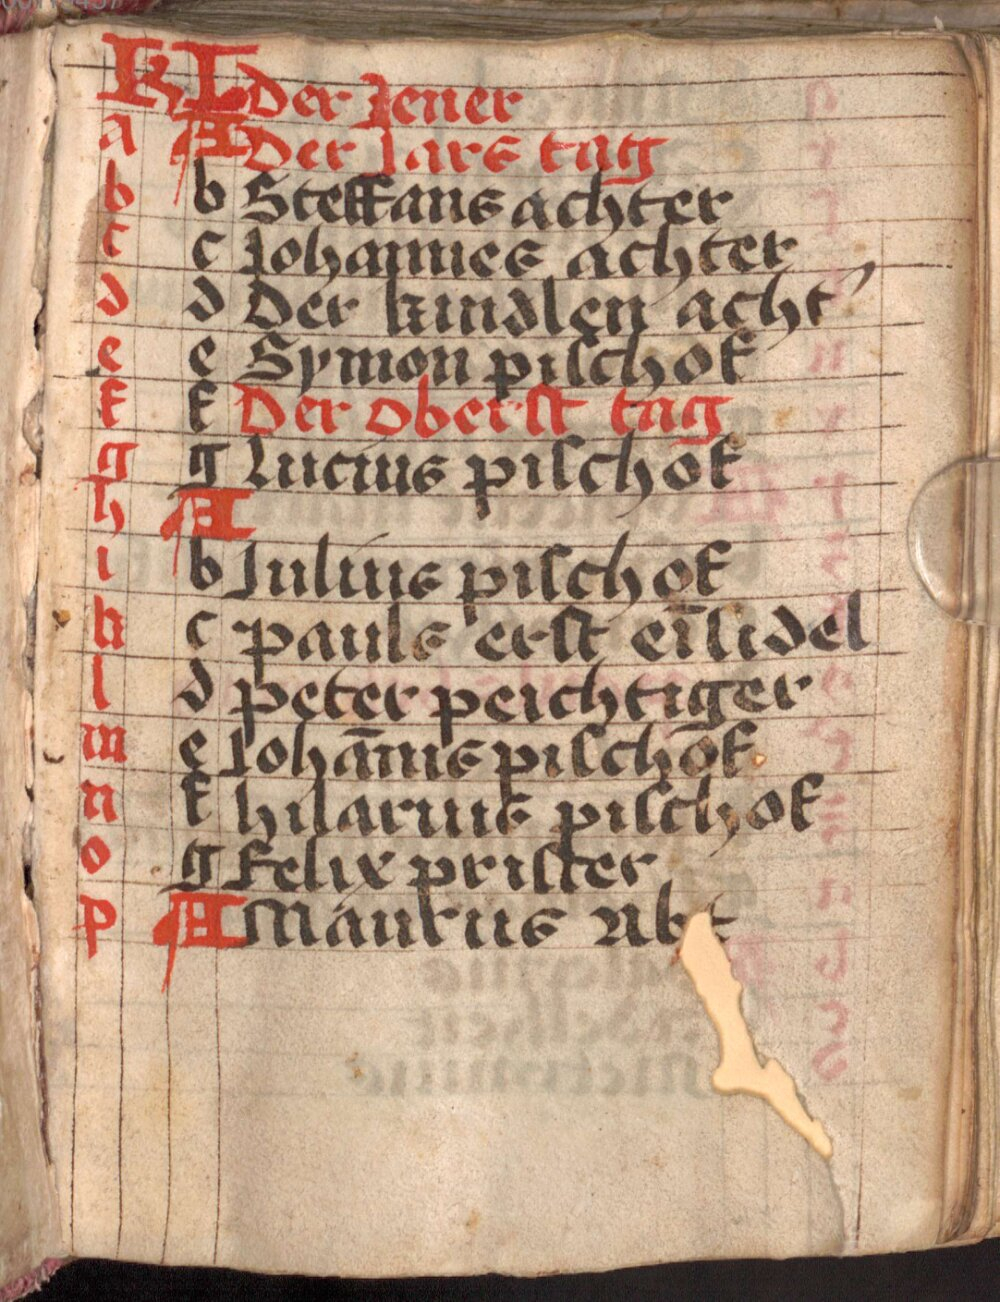 KL der Jener
a A Der Jars tag
b b Steffans achter
c c Johannes achter
d d Der kindlen acht'
e e Symon pischof
f f Der oberst tag
g g Lucius pischof
h A
i b Julius pischof
k c pauls erst eīsidel
l d peter peichtiger
m e Johānis pischof
n f hilarius pischof
o g Felix prister
p A Maurus Abt